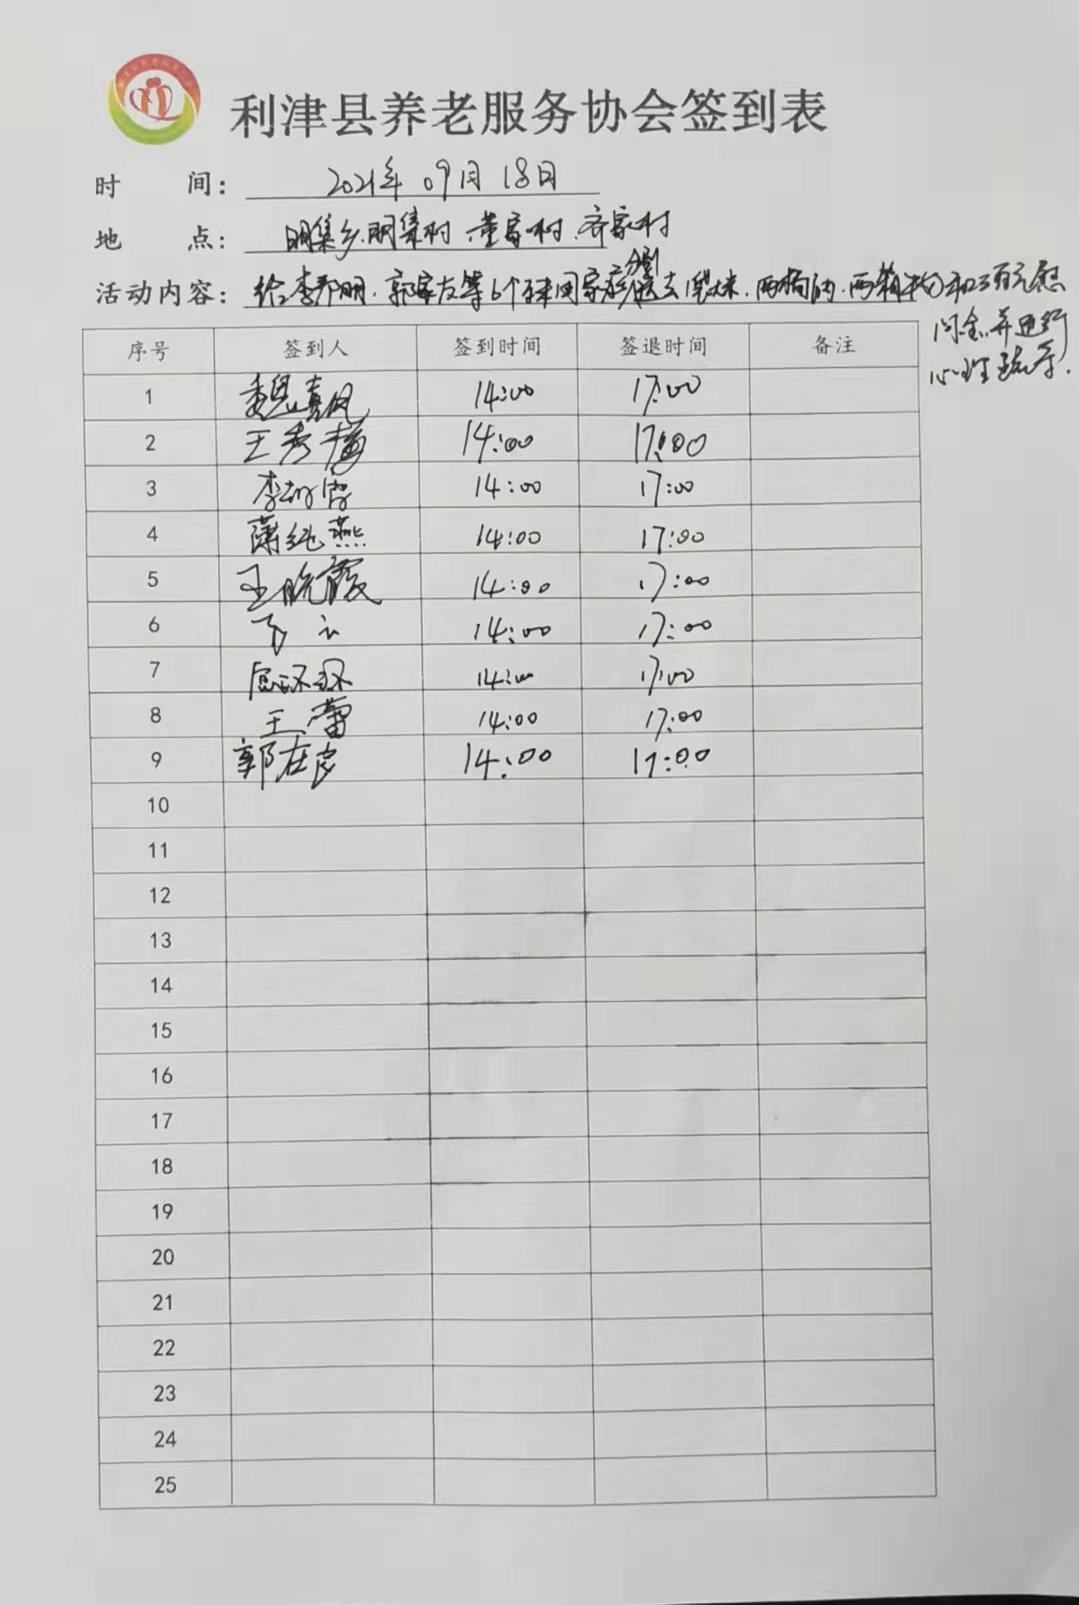 利津县养老服务协会签到表
时 间： 2021年 09月 18日
地 点： 明集乡.明集村.董家村.齐家村
分别
活动内容： 给李邦明.郭家友等6个家庭送去1袋大米.两桶油.两箱 和三百元慰
问金.并进行
心理疏导.
序号 签到人 签到时间 签退时间 备注
1 魏春凤 14:00 17:00
2 王秀梅 14:00 17:00
3 李 14:00 17:00
4 燕 14:00 17:00
5 王晓霞 14:00 17:00
6 14:00 17:00
7 屈环环 14:00 17:00
8 王蕾 14:00 17:00
9 郭在良 14:00 17:00
10
11
12
13
14
15
16
17
18
19
20
21
22
23
24
25